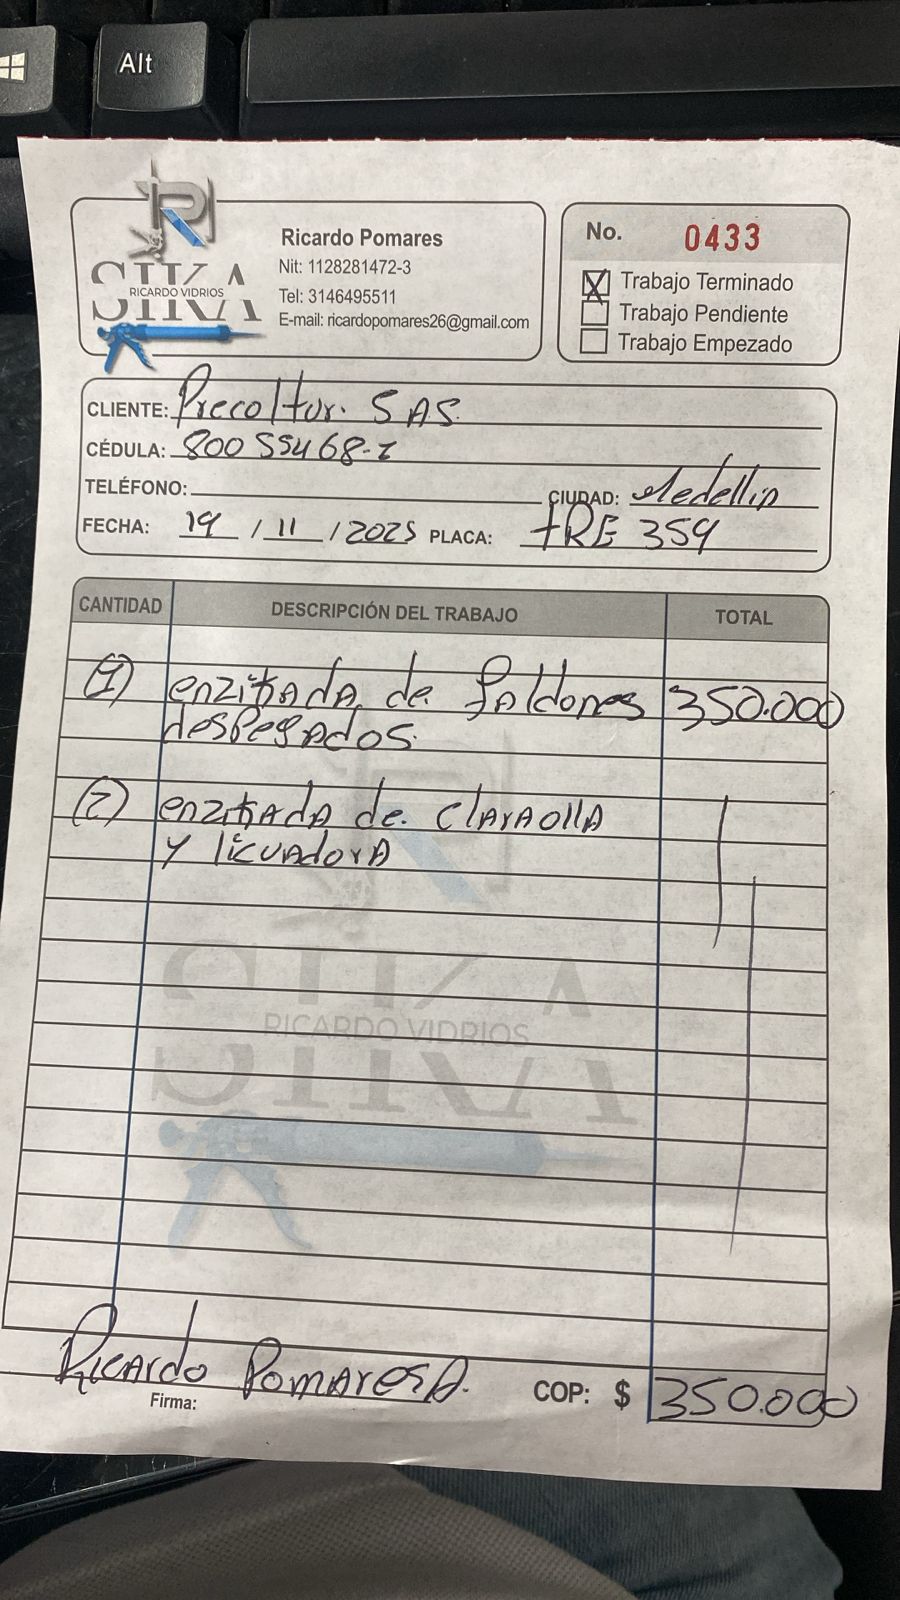 Alt
R
SIKA
RICARDO VIDRIOS
Ricardo Pomares
Nit: 1128281472-3
Tel: 3146495511
E-mail: ricardopomares26@gmail.com
No. 0433
X Trabajo Terminado
Trabajo Pendiente
Trabajo Empezado
CLIENTE: Precoltur. SAS
CÉDULA: 80055468-1
TELÉFONO: CIUDAD: Medellin
FECHA: 19 / 11 / 2025 PLACA: TRE 359
CANTIDAD DESCRIPCIÓN DEL TRABAJO TOTAL
(1) enzikada de faldones 350.000
despegados.
(2) enzikada de. claraolla
y licuadora
SIKA
RICARDO VIDRIOS
Ricardo Pomares
Firma: COP: $ 350.000